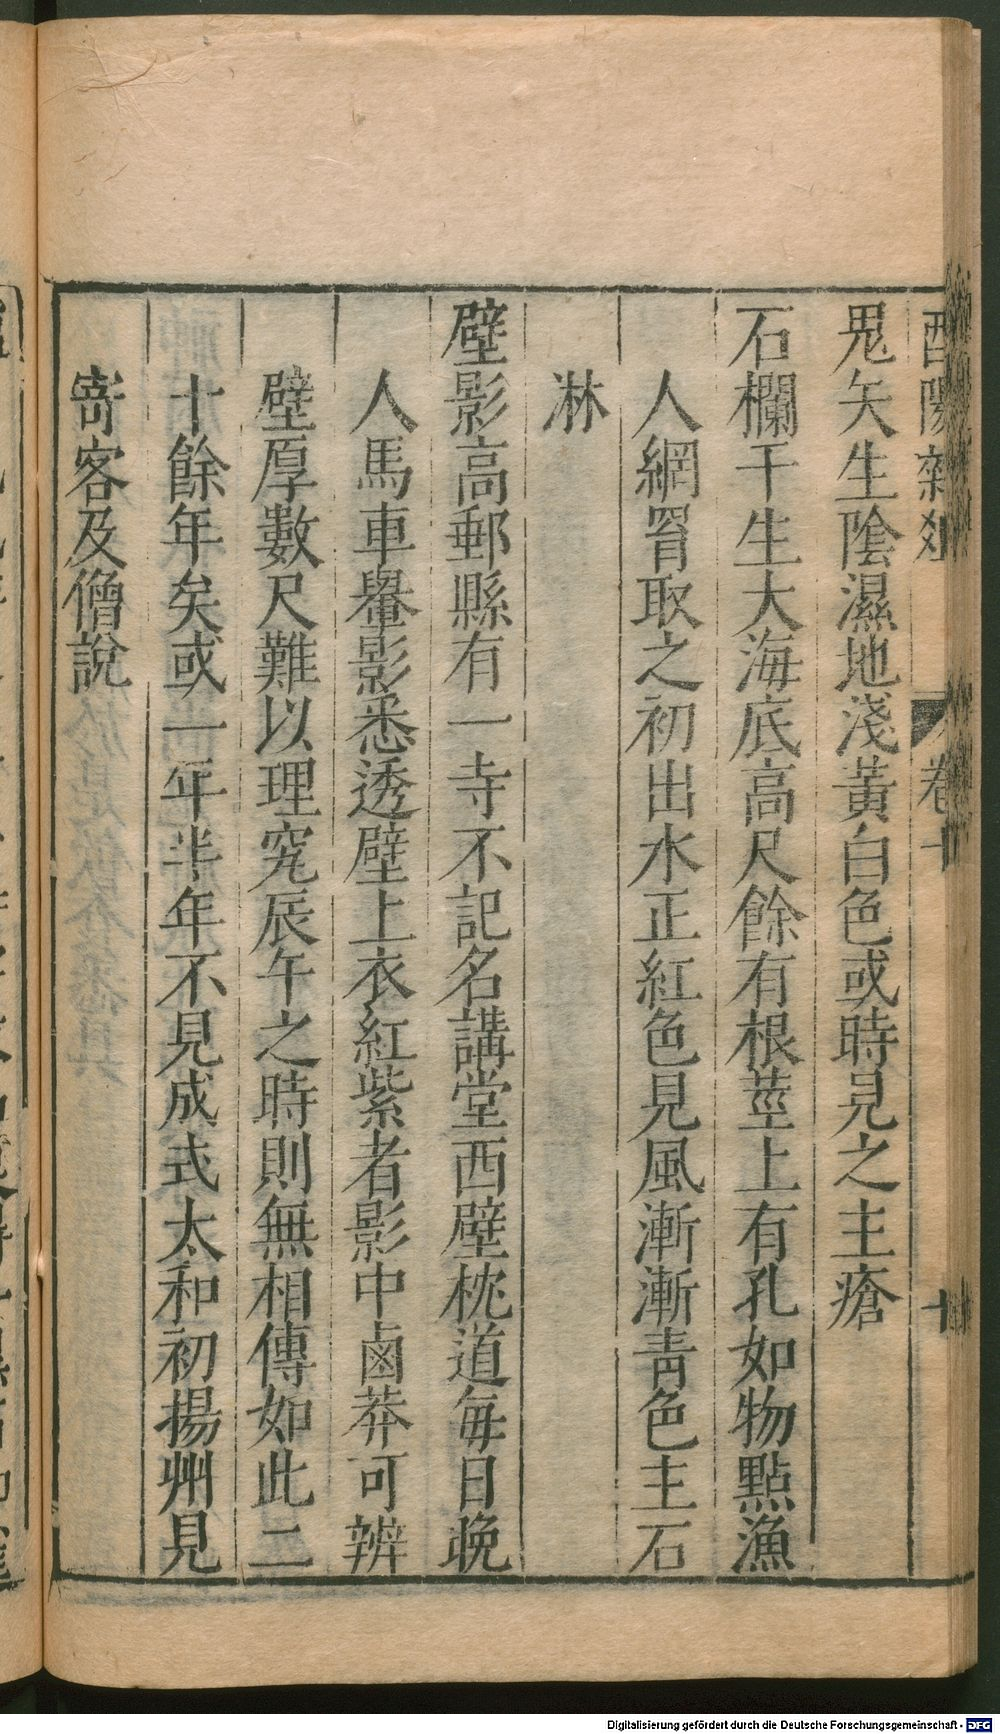 酉陽雜俎 卷十 十
鬼矢生陰濕地淺黃白色或時見之主瘡
石欄干生大海底高尺餘有根莖上有孔如物點漁
人網罥取之初出水正紅色見風漸漸青色主石
淋
壁影高郵縣有一寺不記名講堂西壁枕道每日晚
人馬車轝影悉透壁上衣紅紫者影中鹵莽可辨
壁厚數尺難以理究辰午之時則無相傳如此二
十餘年矣或一年半年不見成式太和初揚州見
寄客及僧說
Digitalisierung gefördert durch die Deutsche Forschungsgemeinschaft - DFG